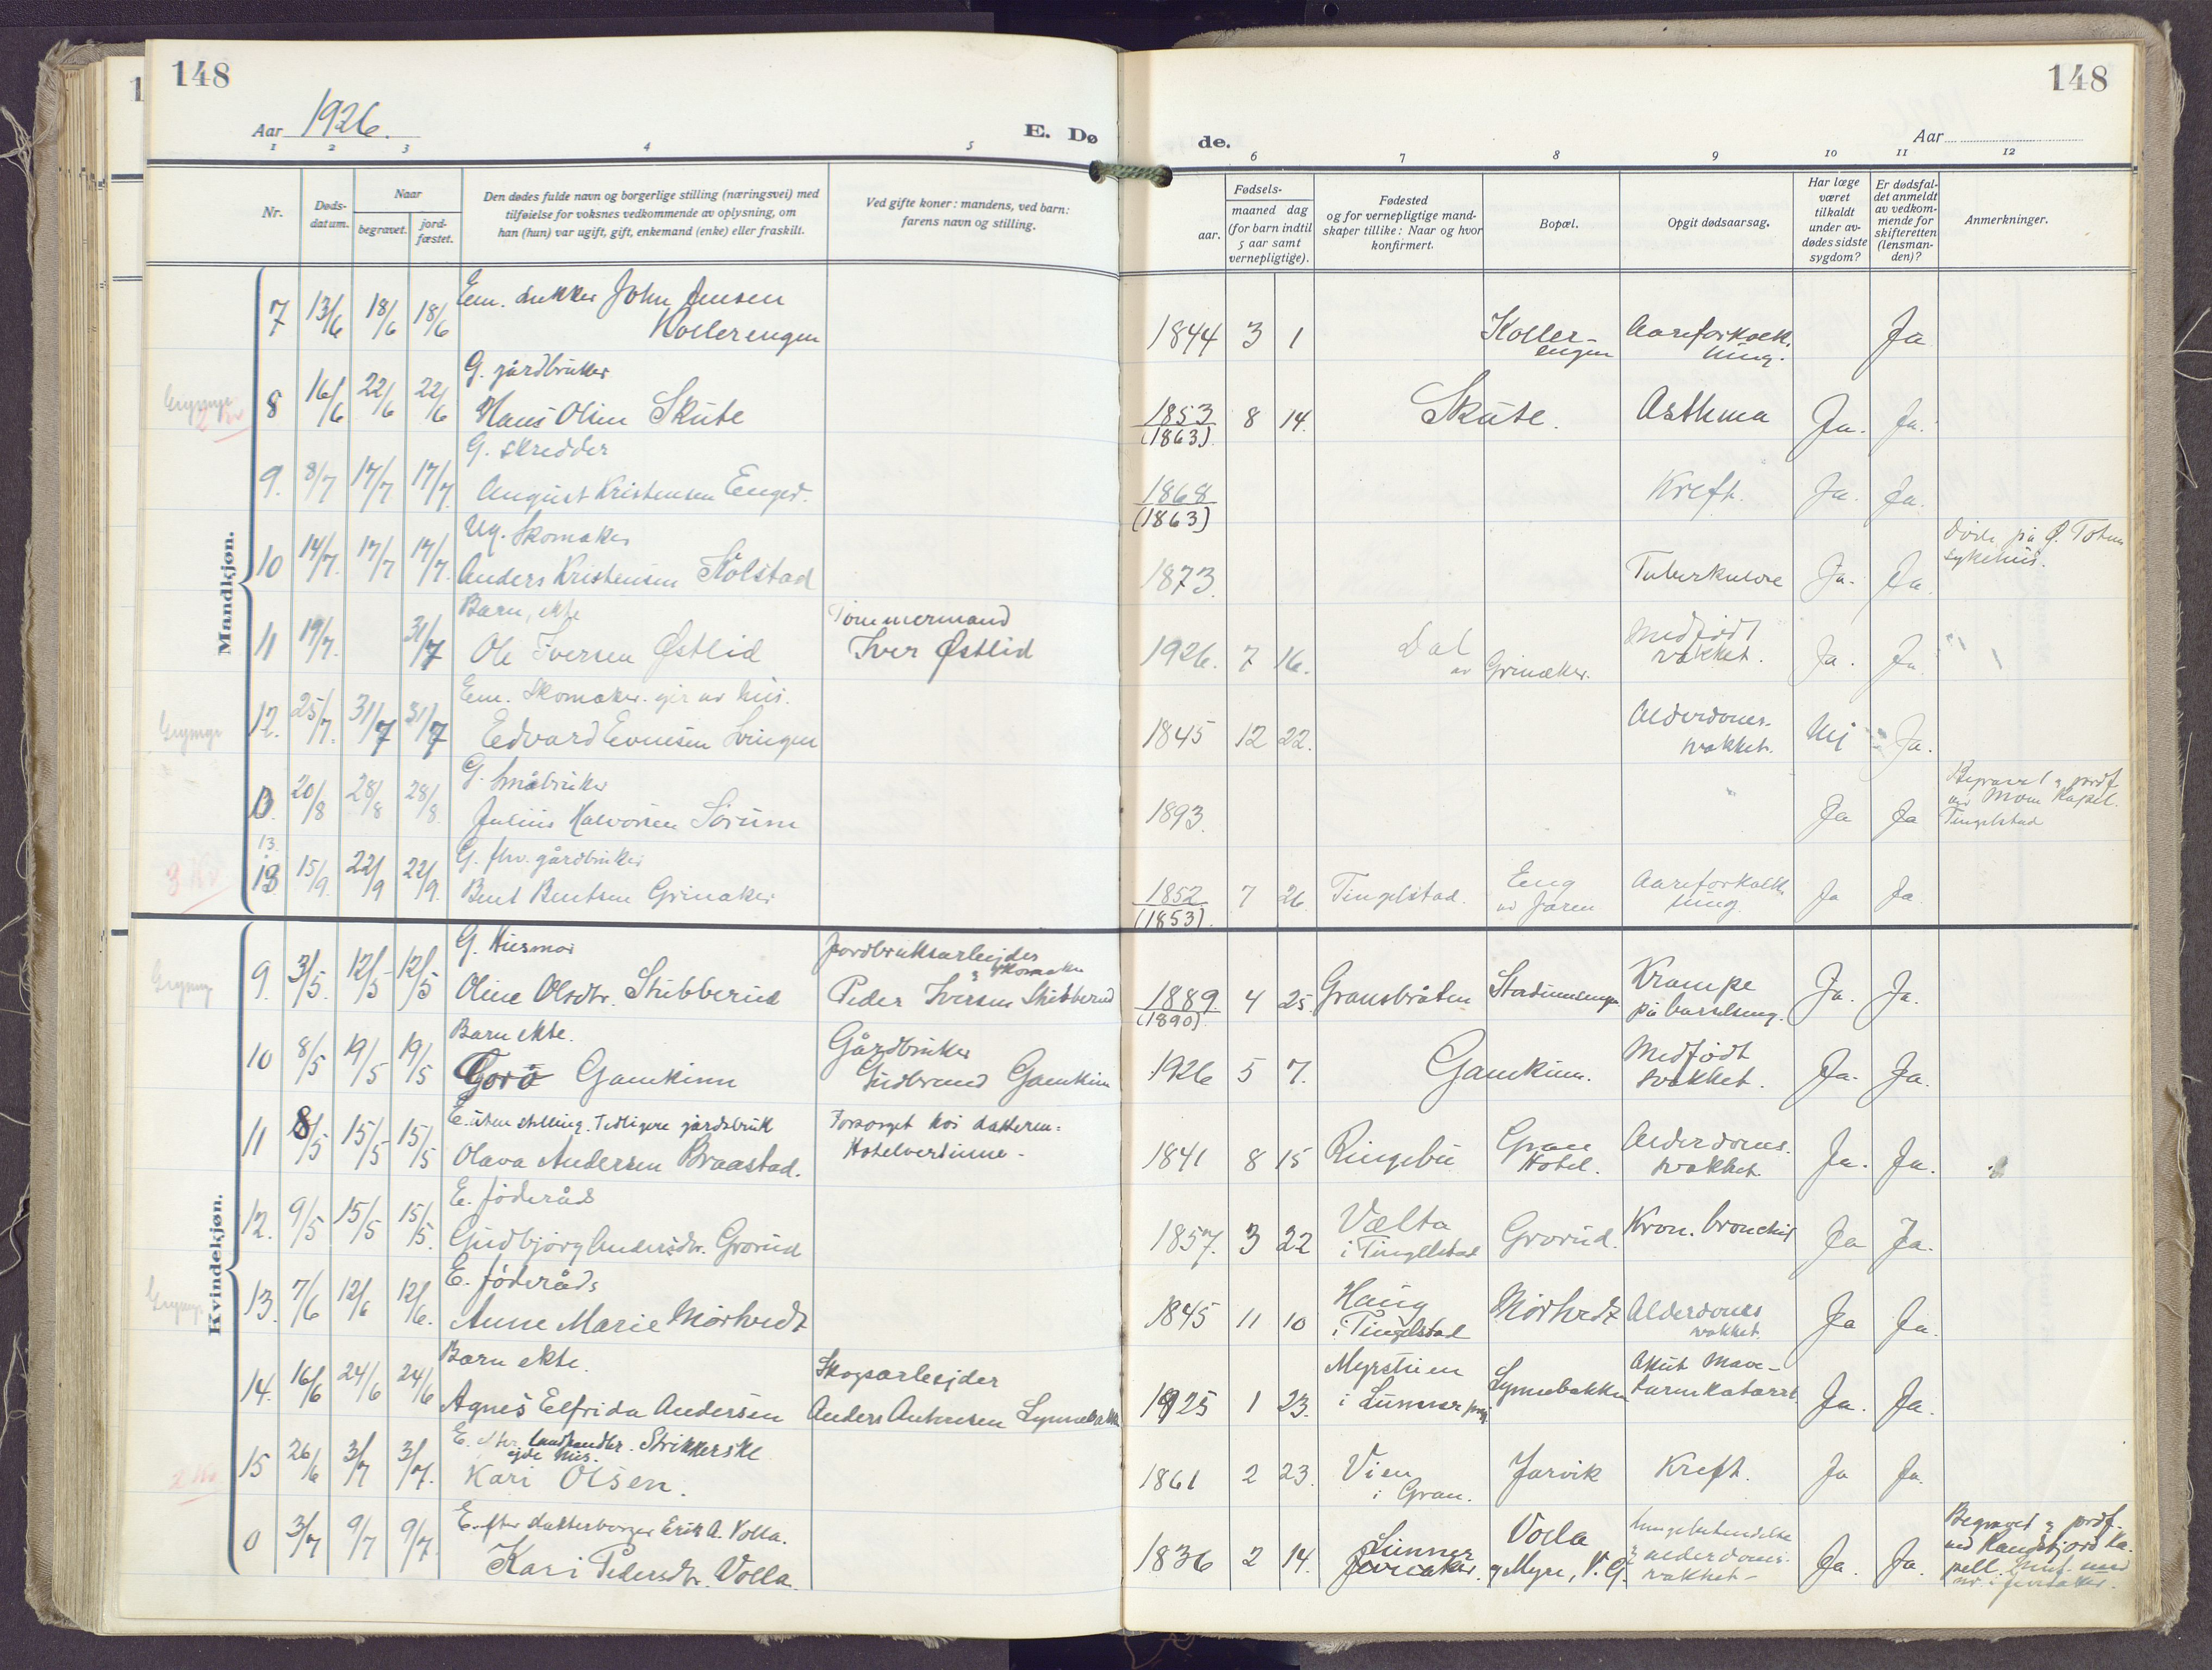 148
148
Aar 1926.
E. Dø
de.
Aar
1 2 3 4 5 6 7 8 9 10 11 12
Nr.
Døds-
datum.
Naar
begravet.
jord-
fæstet.
Den dødes fulde navn og borgerlige stilling (næringsvei) med
tilføielse for voksnes vedkommende av oplysning, om
han (hun) var ugift, gift, enkemand (enke) eller fraskilt.
Ved gifte koner: mandens, ved barn:
farens navn og stilling.
Fødsels-
aar.
maaned dag
(for barn indtil
5 aar samt
vernepligtige).
Fødested
og for vernepligtige mand-
skaper tillike: Naar og hvor
konfirmert.
Bopæl.
Opgit dødsaarsag.
Har læge
været
tilkaldt
under av-
dødes sidste
sygdom?
Er dødsfal-
det anmeldt
av vedkom-
mende for
skifteretten
(lensman-
den)?
Anmerkninger.
Mandkjøn.
7 13/6 18/6 18/6 Em. John Jensen
Kollerengen
1844 3 1 Koller-
engen
Aareforkalk-
ning. Ja
G. gårdbruker
8 16/6 22/6 22/6 Hans Olsen Skute
1853
(1863) 8 14. Skute. Asthma Ja. Ja.
G. skredder
9. 8/7 17/7 17/7. August Kristensen Enger.
1868
(1863) Kreft. Ja. Ja.
Ug. Skomaker
10 14/7. 17/7 17/7. Anders Kristensen Kolstad
1873. Tuberkulose Ja. Ja.
Døde på Ø. Toten
sykehus.
Barn, ekte
11 19/7. 31/7 Ole Iversen Østlid
Tømmermand
Iver Østlid
1926. 7 16. Dal
av Grinaker.
Medfødt
svakhet. Ja. Ja.
Em. Skomaker. eier av hus.
12. 25/7. 31/7 31/7 Edvard Evensen Svingen
1845 12 22. Alderdoms-
svakhet. Nei Ja.
G. småbruker
13. 20/8 28/8 28/8. Julius Halvorsen Sørum
1893. Ja Ja
Begravet & jordf.
ved Moen Kapel.
Tingelstad
G. fhv. gårdbruker
13. 15/9. 22/9 22/9. Bent Bentsen Grinaker
1852
(1853) 7 26 Tingelstad. Eng
ved Jaren
Aareforkalk-
ning. Ja Ja.
Kvindekjøn.
G. Husmor
9. 3/5. 12/5 12/5 Oline Olsdtr. Stubberud
Jordbruksarbejder
& skomaker
Peder Iversen Stubberud
1889
(1890) 4 25. Gransbråten
Krampe
på barselseng. Ja. Ja.
Barn ekte.
10 8/5 19/5 19/5 Goro Gamkinn
Gårdbruker
Gudbrand Gamkinn
1926 5 7. Gamkinn.
Medfødt
svakhet. Ja. Ja.
E. uten stilling. Tidligere gårdsbruk
11 8/5 15/5 15/5 Olava Andersen Braastad.
Forsørget hos datteren:
Hotelvertinne-
1841 8 15 Ringebu Gran
Hotel.
Alderdoms-
svakhet. Ja. Ja.
E. føderåds
12. 9/5 15/5 15/5. Gudbjørg Andersdtr. Grorud
1857. 3 22 Vælta
i Tingelstad Grorud. Kron. bronchit Ja Ja.
E. føderåds
13. 7/6 12/6 12/6. Anne Marie Mørtvedt
1845 11 10 Haug
i Tingelstad Mørtvedt Alderdoms
svakhet. Ja Ja.
Barn ekte.
14. 16/6 24/6 24/6 Agnes Elfrida Andersen
Skogsarbejder
Anders Antonsen Lynnebakken
1925 1 23. Myrstuen
i Lunner prgj. Lynnebakken
Akut mave-
tarmkatarrh. Ja. Ja.
E. efter landhandler. Strikkerske
eyde hus.
15 26/6 3/7 3/7. Kari Olsen.
1861 2 23. Vien
i Gran. Jarvik Kreft. Ja Ja.
E. efter Erik A. Volla.
0 3/7 9/7 9/7. Kari Pedersdtr. Volla.
1836 2 14. Lunner
Volla
& Myre, V. G.
lungebetendelse
& alderdoms-
svakhet- Ja. Ja.
Begravet & jordf.
ved Randsfjord ka-
pell.